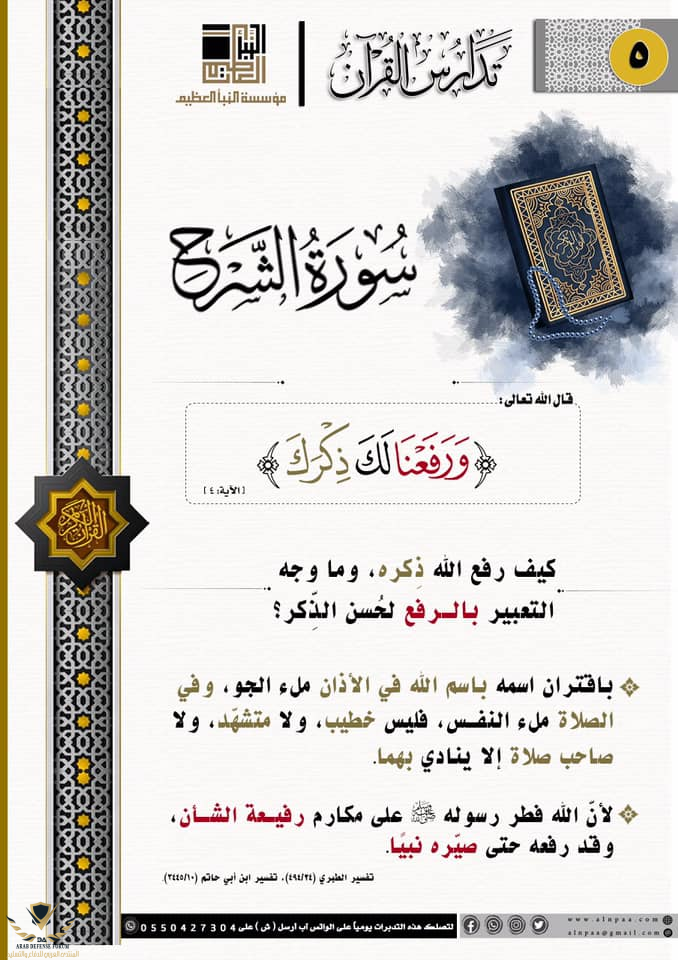 ٥
تدارس القرآن
النبأ العظيم
مؤسسة النبأ العظيم
سُورَةُ الشَّرْحِ
قال الله تعالى:
﴿وَرَفَعْنَا لَكَ ذِكْرَكَ﴾
[الآية: ٤]
القرآن الكريم
كيف رفع الله ذِكره، وما وجه
التعبير بالـرفع لحُسن الذِّكر؟
باقتران اسمه باسم الله في الأذان ملء الجو، وفي
الصلاة ملء النفـس، فليس خطيب، ولا متشهّد، ولا
صاحب صلاة إلا ينادي بهما.
لأنّ الله فطر رسوله ﷺ على مكارم رفيـعة الشـأن،
وقد رفعه حتى صيّره نبيًا.
تفسير الطبري (٤٩٤/٢٤)، تفسير ابن أبي حاتم (٣٤٤٥/١٠).
www.alnpaa.com
alnpaa@gmail.com
لتصلك هذه التدبرات يومياً على الواتس آب أرسل (ش) على 0550427304
ARAB DEFENSE FORUM
المنتدى العربي للدفاع والتسليح